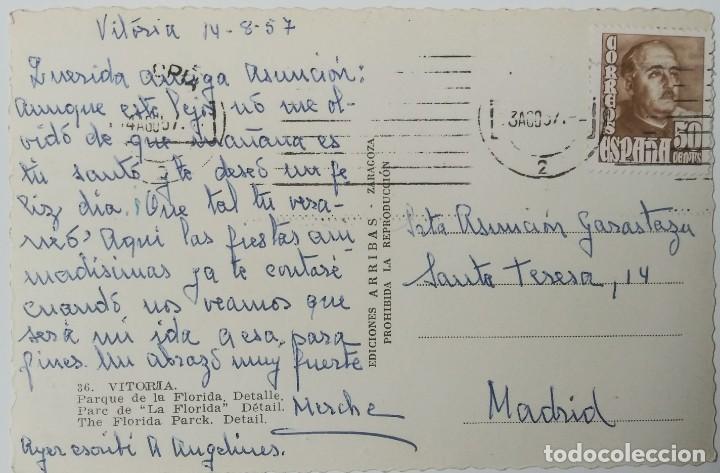 Vitória 14-8-57
Querida amiga Asunción:
aunque esto lejos nó me ol-
vidó de que mañana es
tu santó y te deseó un fe
liz dia. Que tal tu vera-
neó? Aqui las fiestas ani
madísimas ya te contaré
cuandó nos veamos que
será mi ida a esa, para
fines. Un abrazó muy fuerte
Merche
Ayer escribí A Angelines.
36. VITORIA.
Parque de la Florida. Detalle.
Parc de "La Florida" Détail.
The Florida Parck. Detail.
EDICIONES ARRIBAS - ZARAGOZA
PROHIBIDA LA REPRODUCCIÓN
14AGO57.
13AGO57.
2
CORREOS
ESPAÑA
50
CENTMS
Srta Asunción Garastazu
Santa Teresa, 14
Madrid
todocoleccion.net